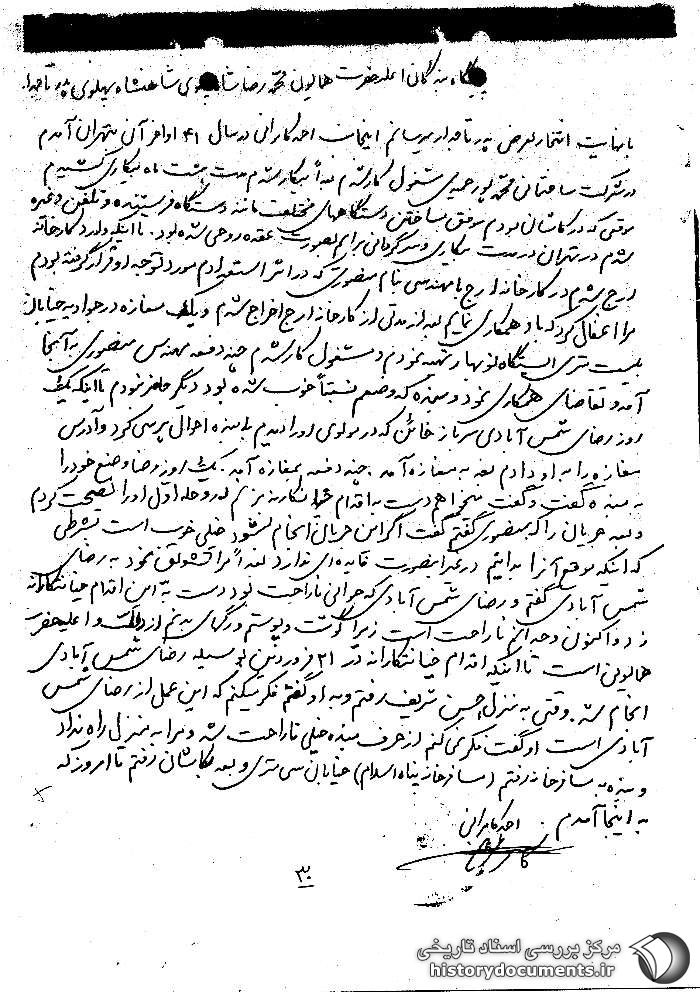 پیشگاه بندگان اعلیحضرت همایون محمد رضا شاه پهلوی شاهنشاه پهلوی پدر تاجدار
با نهایت افتخار بعرض پدر تاجدار میرسانم اینجانب احمد کامرانی در سال ۴۱ اواخر آن بتهران آمدم
در شرکت ساختمانی محمد پور حمیدی مشغول کار شدم بعداً بیکار شدم مدت هشت ماه بیکاری کشیدم
موقعی که در کاشان بودم موفق بساختن دستگاههای مختلف مانند دستگاه فرستنده و تلفن و غیره
شدم در تهران در مدت بیکاری و سرگردانی برایم بصورت عقده روحی شده بود. تا اینکه وارد کارخانه
ارج شدم در کارخانه ارج با مهندسی بنام منصوری که در اثر استعدادم مورد توجه او قرار گرفته بودم
مرا اغفال کرد که با او همکاری نمایم بعد از مدتی از کارخانه ارج اخراج شدم و یک مغازه در جوادیه خیابان
بیست متری ایستگاه نوبهار تهیه نمودم و مشغول کار شدم چند دفعه مهندس منصوری به آنجا
آمد و تقاضای همکاری نمود و بنده که وضعم نسبتاً خوب شده بود دیگر حاضر نبودم تا اینکه یک
روز رضای شمس آبادی سرباز خائن که در مولوی او را دیدم با بنده احوال پرسی کرد و آدرس
مغازه را به او دادم بعد به مغازه آمد. چند دفعه بمغازه آمد. یک روز رضا وضع خود را
به بنده گفت و گفت میخواهم دست به اقدام خیانتکارانه بزنم در وحله اول او را نصیحت کردم
و بعد جریان را که بمنصوری گفتم گفت اگر این جریان انجام بشود خیلی خوب است بشرطی
که اینکه موقع آنرا بدانیم در غیر اینصورت فایده‌ای ندارد بعداً مرا تشویق نمود به رضای
شمس آبادی گفتم و رضای شمس آبادی که جوانی ناراحت بود دست به این اقدام خیانتکارانه
زد و اکنون وجدانم ناراحت است زیرا گوشت و پوستم و رگهای بدنم از دولت و اعلیحضرت
همایونی است تا اینکه اقدام خیانتکارانه در ۲۱ فروردین بوسیله رضای شمس آبادی
انجام شد. وقتی به منزل حسن شریف رفتم و به او گفتم فکر میکنم که این عمل از رضای شمس
آبادی است او گفت فکر نمی کنم از حرف بنده خیلی ناراحت شد و مرا به منزل راه نداد
و بنده به مسافرخانه رفتم (مسافرخانه پناه اسلام) خیابان سی متری و بعد بکاشان رفتم تا امروز که
به اینجا آمدم.
احمد کامرانی
۳۰
مرکز بررسی اسناد تاریخی
historydocuments.ir